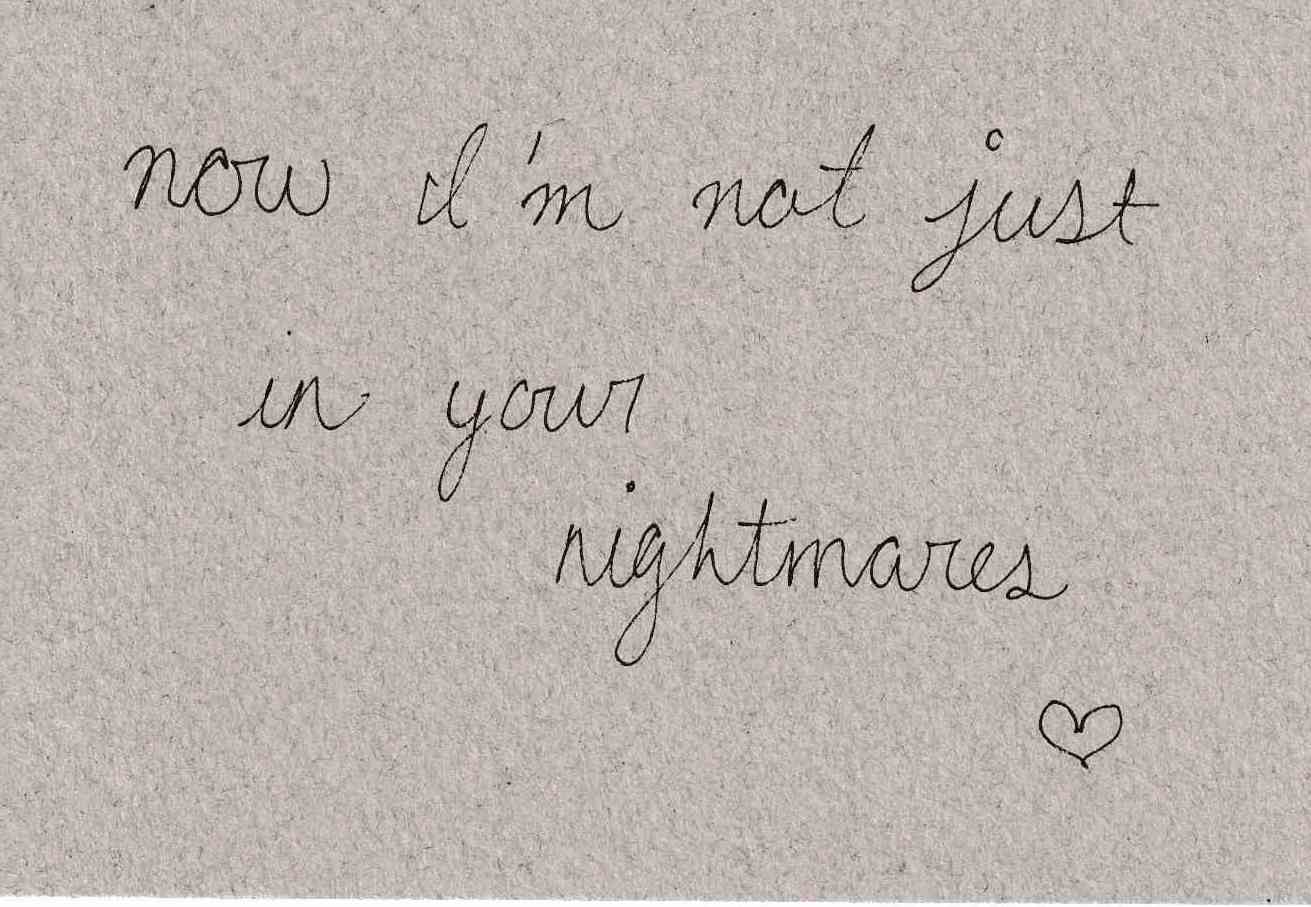 now I'm not just
in your
nightmares
♡